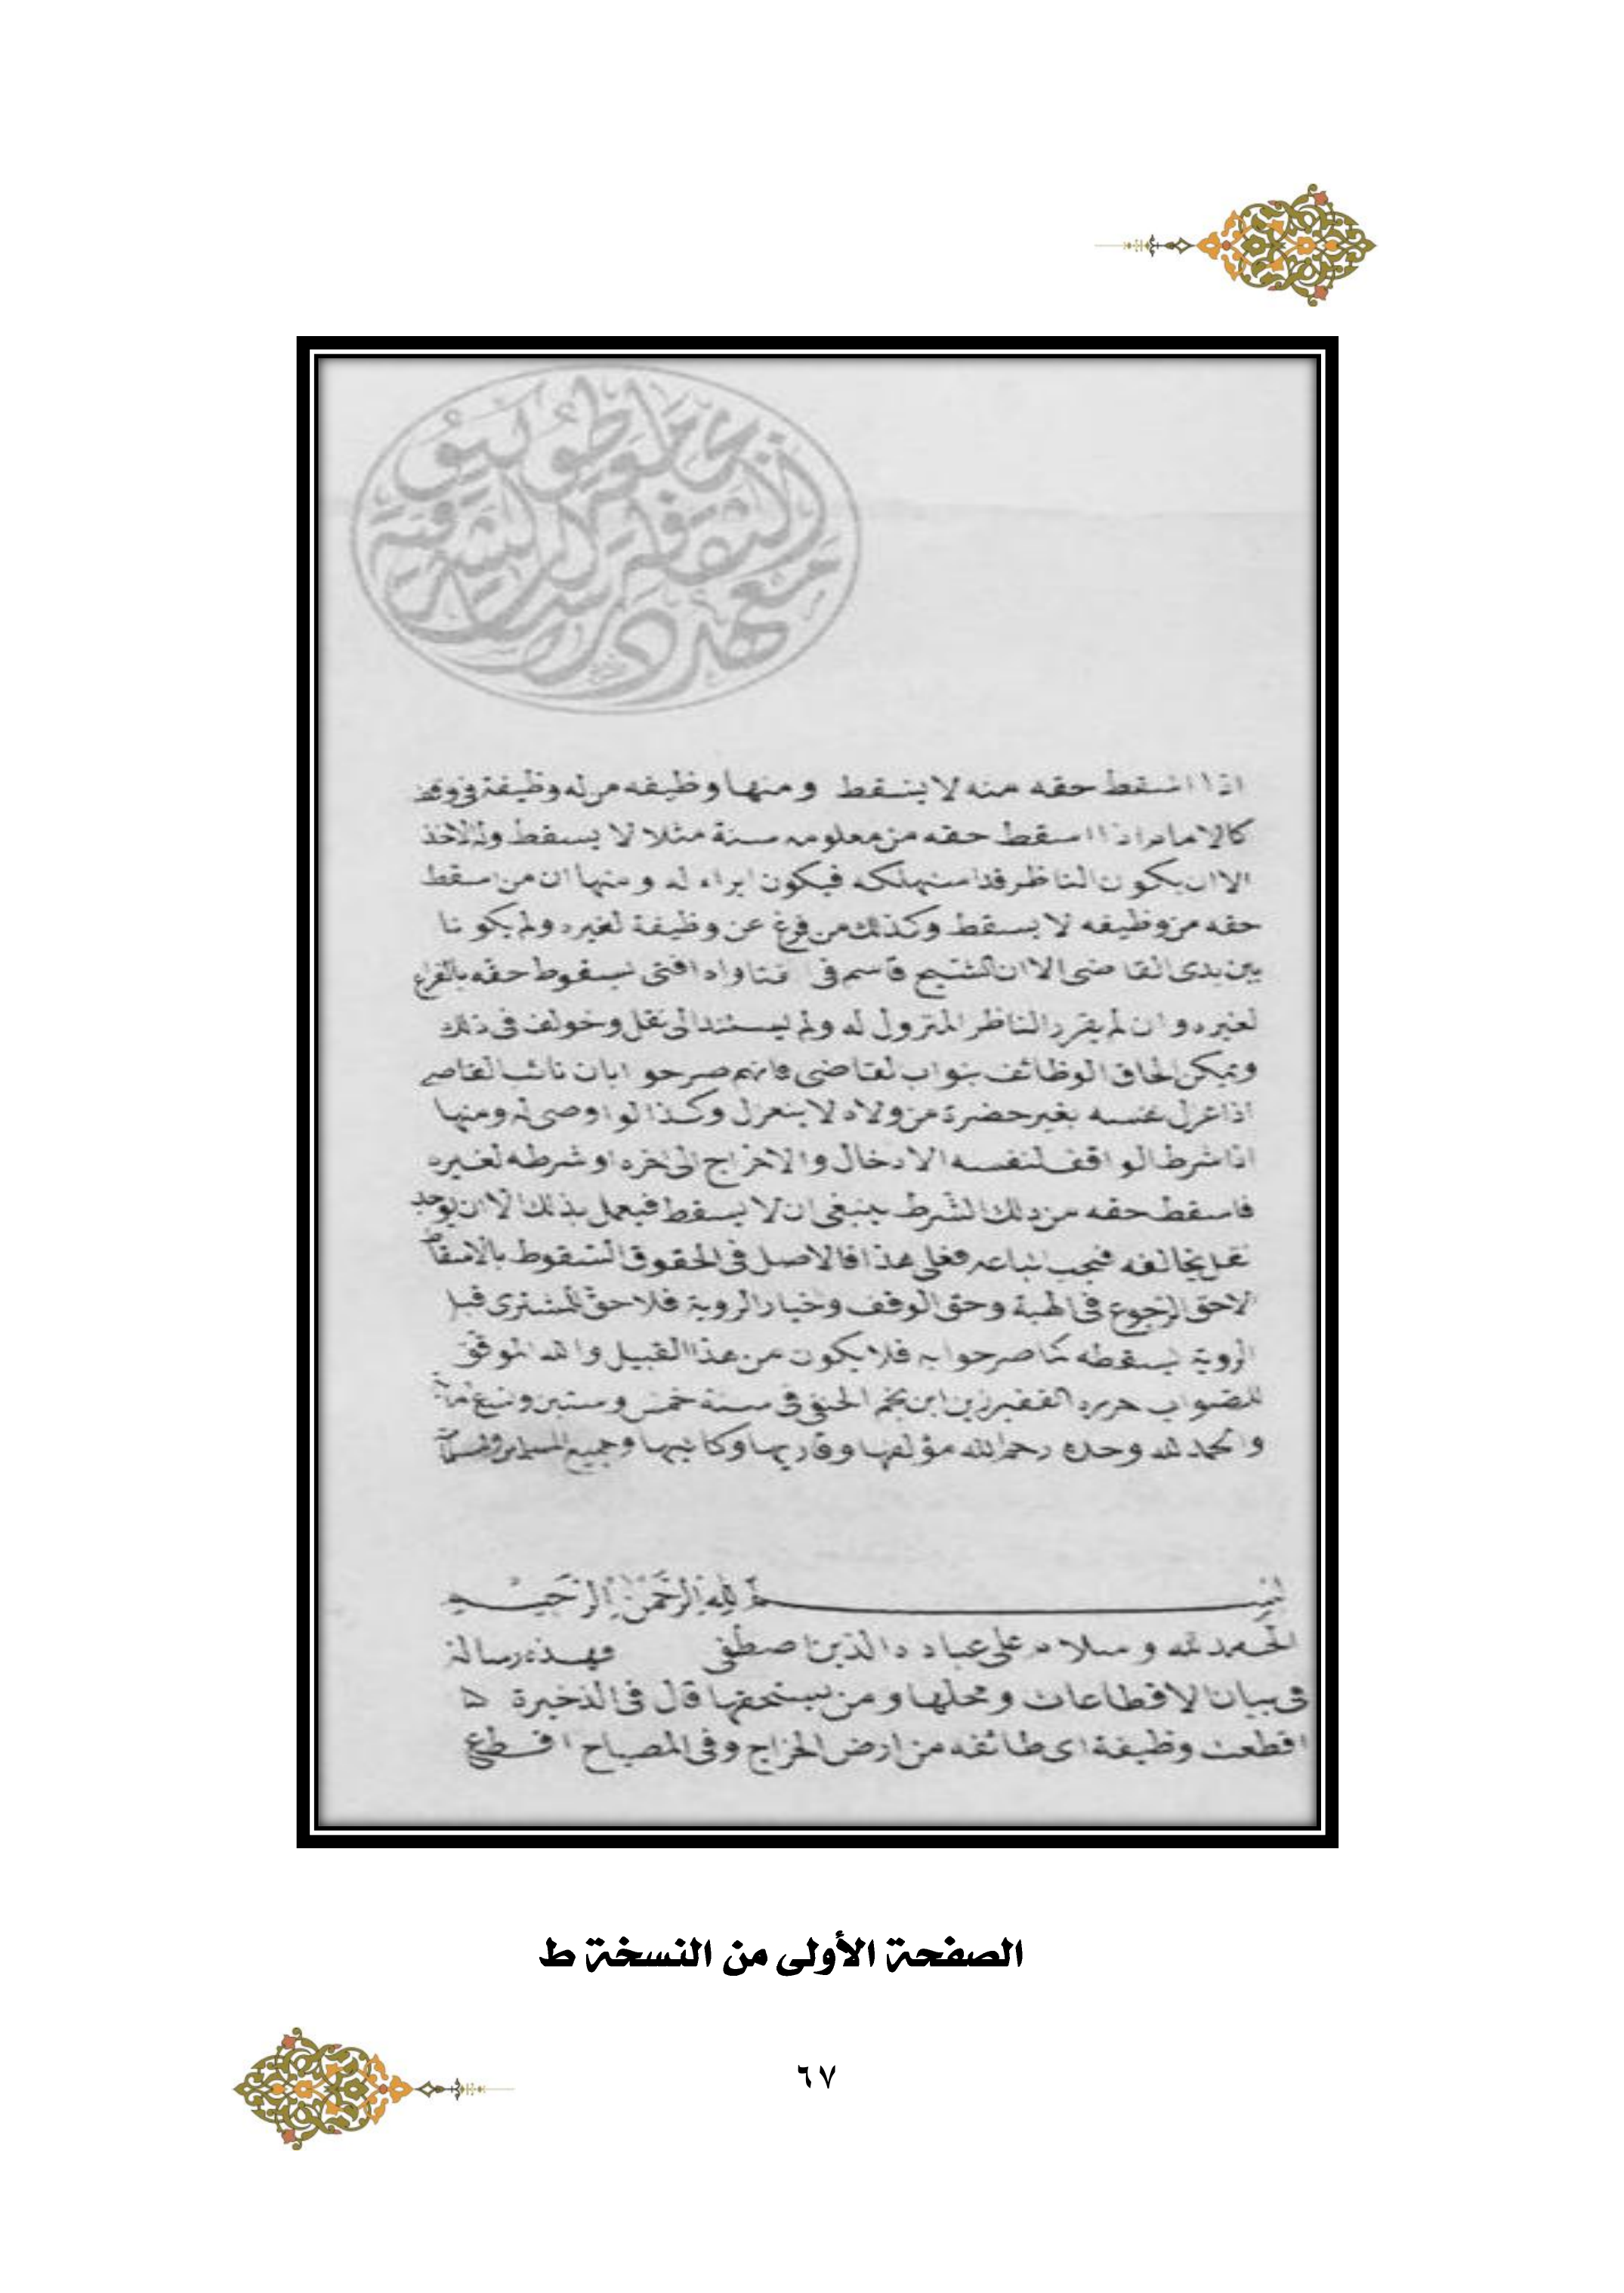 معهد الثقافة والدراسات الشرقية
جامعة طوكيو
اذا اسقط حقه منه لا ينسقط ومنها وظيفه من له وظيفة فى وقف
كالامام اذا اسقط حقه من معلومه سنة مثلا لا يسقط وله الاخذ
الا ان يكون الناظر قد استهلكه فيكون ابراء له ومنها ان من اسقط
حقه من وظيفه لا يسقط وكذلك من فرغ عن وظيفة لغيره ولم يكونا
بين يدى القاضى الا ان الشيخ قاسم فى فتاواه افتى بسقوط حقه بالفراغ
لغيره وان لم يقرر الناظر المنزول له ولم يستند الى نقل وخولف فى ذلك
ويمكن الحاق الوظائف بنواب القاضى فانهم صرحوا بان نائب القاضى
اذا عزل نفسه بغير حضرة من ولاه لا ينعزل وكذا لو اوصى له ومنها
اذا شرط الواقف لنفسه الادخال والاخراج الى اخره او شرطه لغيره
فاسقط حقه من ذلك الشرط ينبغى ان لا يسقط فيعمل بذلك الا ان يوجد
نقل يخالفه فيجب اتباعه فعلى هذا فالاصل فى الحقوق السقوط بالاسقاط
الا حق الرجوع فى الهبة وحق الوقف وخيار الروية فلا حق للمشترى قبل
الروية يسقطه كما صرحوا به فلا يكون من هذا القبيل والله الموفق
للصواب حرره الفقير زين ابن نجيم الحنفى فى سنة خمس وستين وتسع مائة
والحمد لله وحده رحم الله مؤلفها وقاريها وكاتبها وجميع المسلمين
بسم الله الرحمن الرحيم
الحمد لله وسلام على عباده الذين اصطفى فهذه رسالة
فى بيان الاقطاعات ومحلها ومن يستحقها قال فى الذخيرة
اقطعت وظيفة اى طائفه من ارض الخراج وفى المصباح اقطع
الصفحة الأولى من النسخة ط
٦٧